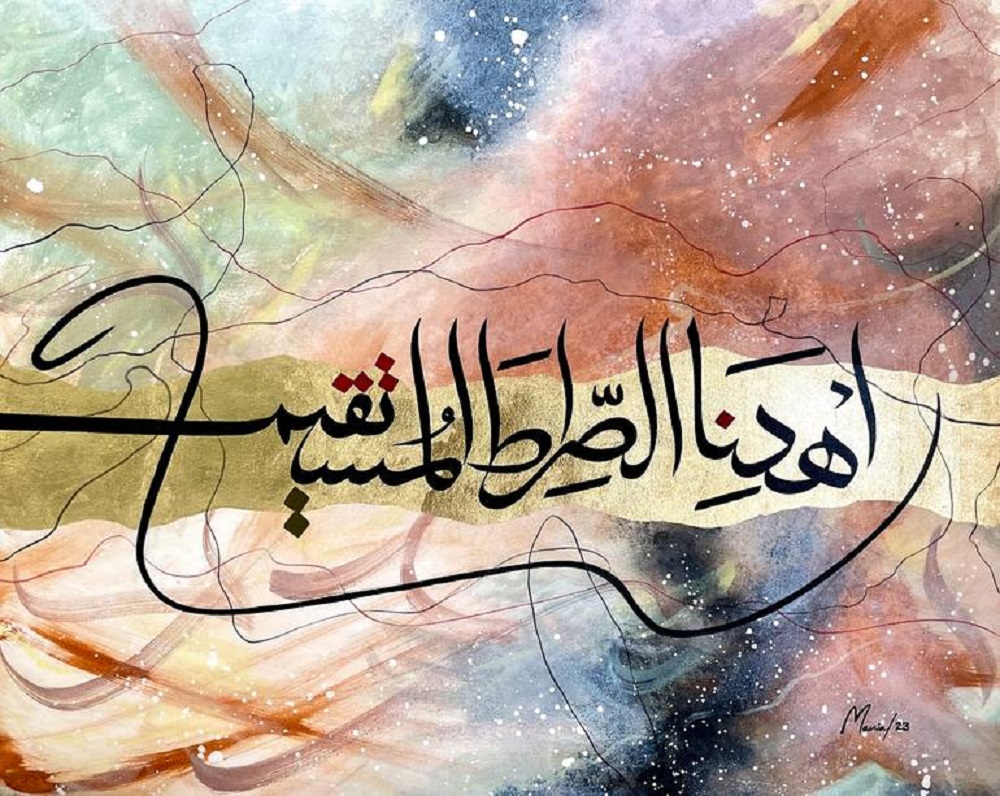 اهْدِنا الصِّراطَ المُستقيم
Maria/23